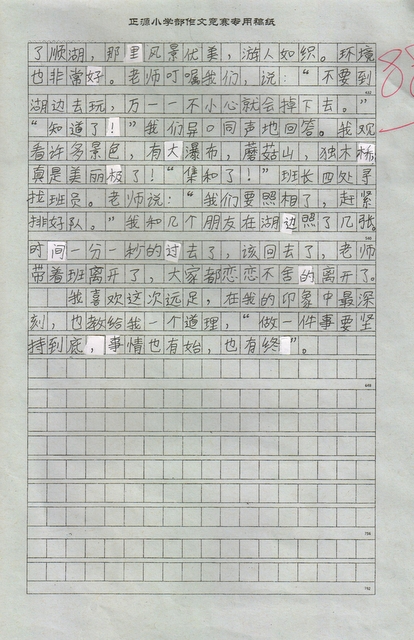 正源小学部作文竞赛专用稿纸
了顺湖，那里风景优美，游人如织。环境
也非常好。老师叮嘱我们，说：“不要到
湖边去玩，万一一不小心就会掉下去。”
“知道了！”我们异口同声地回答。我观
看许多景色，有大瀑布，蘑菇山，独木桥，
真是美丽极了！“集和了！”班长四处寻
找班员。老师说：“我们要照相了，赶紧
排好队。”我和几个朋友在湖边照了几张。
时间一分一秒的过去了，该回去了，老师
带着班离开了，大家都恋恋不舍的离开了。
我喜欢这次远足，在我的印象中最深
刻，也教给我一个道理，“做一件事要坚
持到底，事情也有始，也有终”。